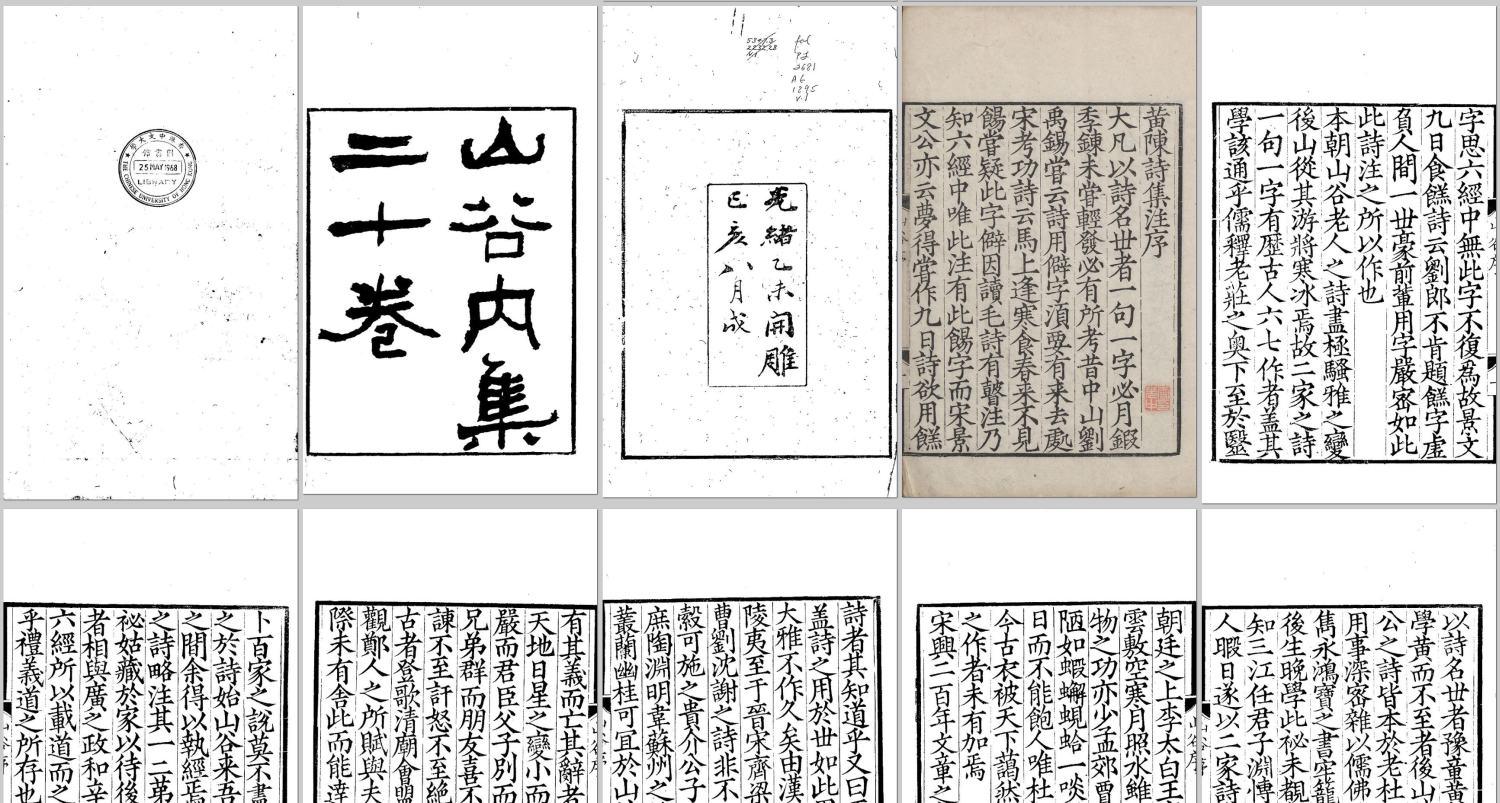 香港中文大學
圖書館
25 MAY 1968
LIBRARY
THE CHINESE UNIVERSITY OF HONG KONG
山谷内集
二十卷
fol
2681
A6
光緒乙未開雕
己亥八月成
黄陳詩集注序
大凡以詩名世者一句一字必月鍜
季鍊未嘗輕發必有所考昔中山劉
禹錫嘗云詩用僻字湏要有来去處
宋考功詩云馬上逢寒食春来不見
餳嘗疑此字僻因讀毛詩有瞽注乃
知六經中唯此注有此餳字而宋景
文公亦云夢得嘗作九日詩欲用餻
字思六經中無此字不復為故景文
九日食餻詩云劉郎不肯題餻字虚
負人間一世豪前輩用字嚴密如此
此詩注之所以作也
本朝山谷老人之詩盡極騷雅之變
後山從其游將寒冰焉故二家之詩
一句一字有歷古人六七作者盖其
學該通乎儒釋老莊之奥下至於毉
卜百家之説莫不盡
之於詩始山谷来吾
之間余得以執經焉
之詩略注其一二苐
祕姑藏於家以待後
者相與廣之政和辛
六經所以載道而之
乎禮義道之所存也
有其義而亡其辭者
天地日星之變小而
嚴而君臣父子别而
兄弟群而朋友喜不
諫不至訐怒不至絶
古者登歌清廟會盟
觀鄭人之所賦與夫
際未有舍此而能達
詩者其知道乎又曰
盖詩之用於世如此
大雅不作久矣由漢
陵夷至于晉宋齊梁
曹劉沈謝之詩非不
縠可施之貴介公子
庶陶淵明韋蘇州之
叢蘭幽桂可宜於山
朝廷之上李太白王
雲敷空寒月照水雖
物之功亦少孟郊賈
陋如蝦蠏蜆蛤一啖
日而不能飽人唯杜
今古衣被天下藹然
之作者未有加焉
宋興二百年文章之
以詩名世者豫章
學黄而不至者後山
公之詩皆本於老杜
用事深密雜以儒佛
雋永鴻寶之書牢籠
後生晚學此祕未覩
知三江任君子淵愽
人暇日遂以二家詩